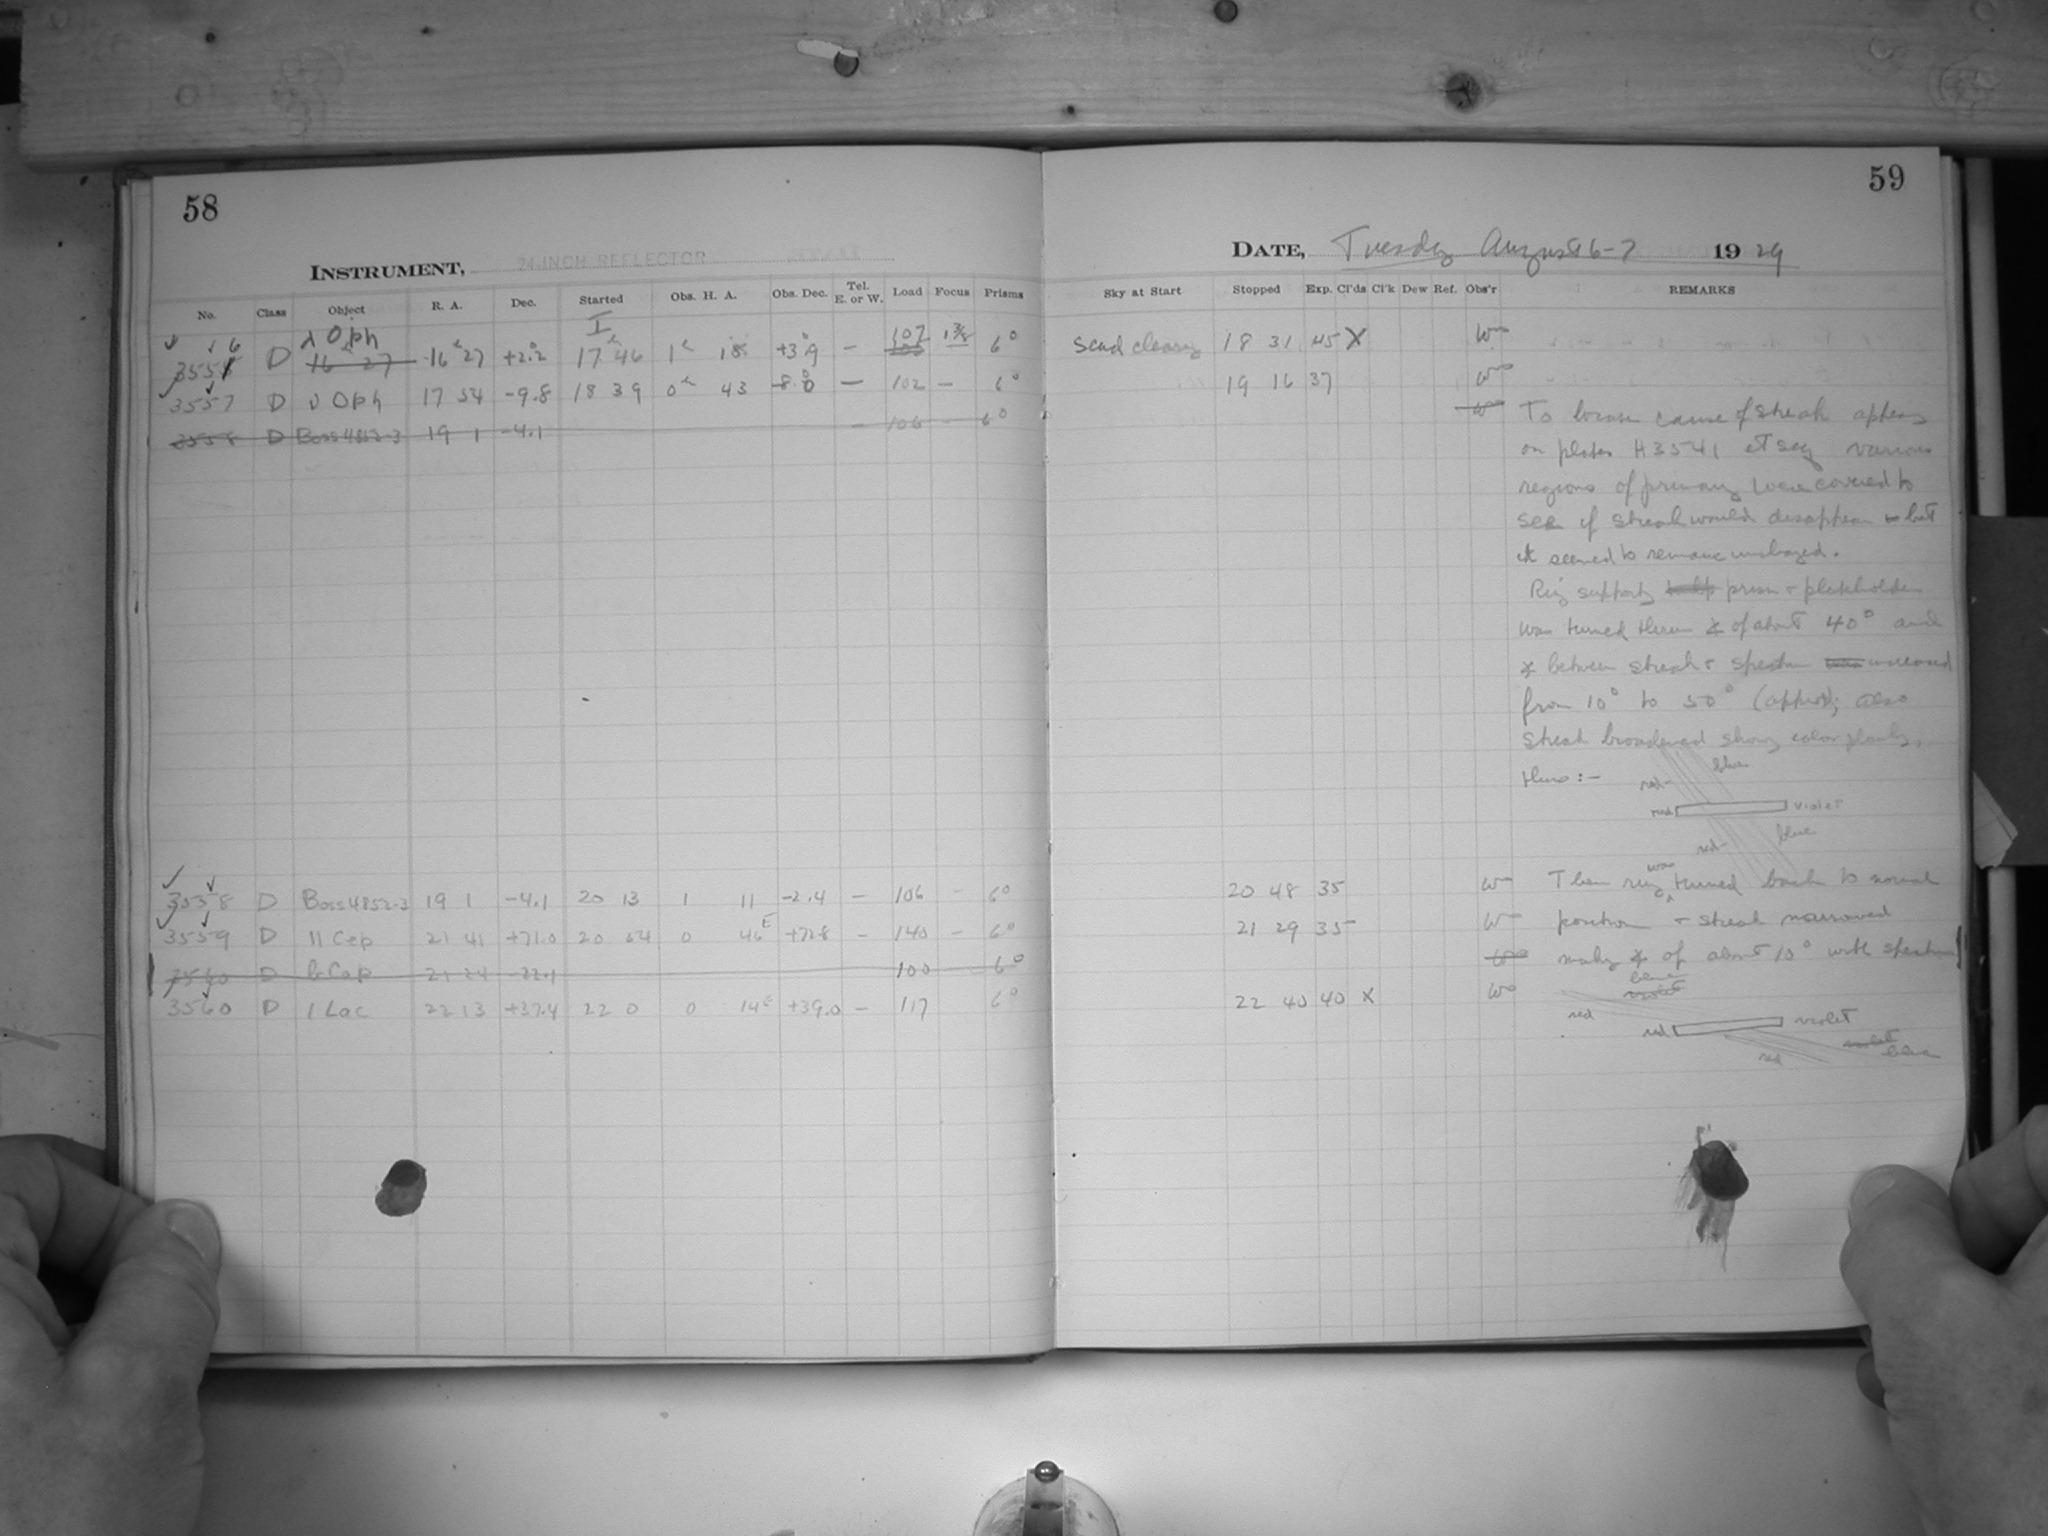 58
INSTRUMENT, 24-INCH REFLECTOR
No. Class Object R. A. Dec. Started Obs. H. A. Obs. Dec. Tel. E. or W. Load Focus Prisms
I
λ Oph
3556 D 16 27 16 27 +2.2 17 46 1 18 +3.9 — 107 1 3/8 6°
3557 D ν Oph 17 54 -9.8 18 39 0 43 -8.0 — 102 — 6°
3558 D Boss 4852-3 19 1 -4.1 — 106 — 6°
3558 D Boss 4852-3 19 1 -4.1 20 13 1 11 -2.4 — 106 — 6°
3559 D 11 Cep 21 41 +71.0 20 54 0 46 E +72.8 — 140 — 6°
3560 D b Cap 21 24 -22.1 100 — 6°
3560 D 1 Lac 22 13 +37.4 22 0 0 14 E +39.0 — 117 6°
59
DATE, Tuesday August 6-7 1929
Sky at Start Stopped Exp. Cl'ds Cl'k Dew Ref. Obs'r REMARKS
18 31 45 X W
19 16 37 W
To cause of streak
on plates H3541 et seq various
regions of primary were covered to
see if streak would disappear but
it seemed to remain unchanged.
Ring supporting prism + plateholder
was turned thru ∡ of about 40° and
∡ between streak + spectrum increased
from 10° to 50° (approx); also
streak broadened showing color plainly,
thus :-
red blue
red violet
red blue
20 48 35 W Then ring was turned back to normal
21 29 35 W position + streak narrowed
making ∡ of about 10° with spectrum
22 40 40 X W
blue
violet
red
red violet
violet
red blue